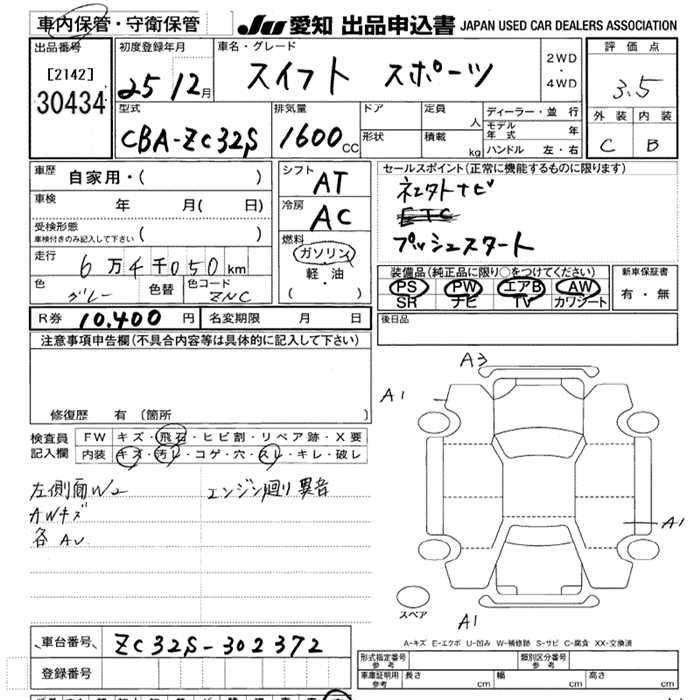 車内保管・守衛保管
JU 愛知 出品申込書 JAPAN USED CAR DEALERS ASSOCIATION
出品番号
[2142]
30434
初度登録年月
25 12月
車名・グレード
スイフト スポーツ
2WD
・
4WD
評価点
3.5
外装 内装
C B
型式
CBA-ZC32S
排気量
1600cc
ドア
形状
定員 人
積載 kg
ディーラー・並行
モデル年式 年
ハンドル 左・右
車歴 自家用・( )
車検 年 月( 日)
受検形態
車検付きのみ記入して下さい ( )
走行 6万4千050km
色 グレー
色替
色コード ZNC
シフト AT
冷房 AC
燃料
ガソリン
軽・油
( ・ )
セールスポイント(正常に機能するものに限ります)
ETC
プッシュスタート
装備品(純正品に限り○をつけてください)
PS PW エアB AW
SR ナビ TV カワシート
新車保証書
有・無
R券 10.400 円
名変期限 月 日
後日品
注意事項申告欄(不具合内容等は具体的に記入して下さい)
修復歴 有(箇所 )
検査員記入欄
FW キズ・飛石・ヒビ割・リペア跡・X要
内装 キズ・汚レ・コゲ・穴・スレ・キレ・破レ
左側面W2
AWキズ
各AU
エンジン廻り異音
A3
A1
A1
A1
スペア
A-キズ E-エクボ U-凹み W-補修跡 S-サビ C-腐食 XX-交換済
車台番号 ZC32S-302372
登録番号
形式指定番号
参考
類別区分番号
参考
車庫証明用
参考
長さ cm
幅 cm
高さ cm